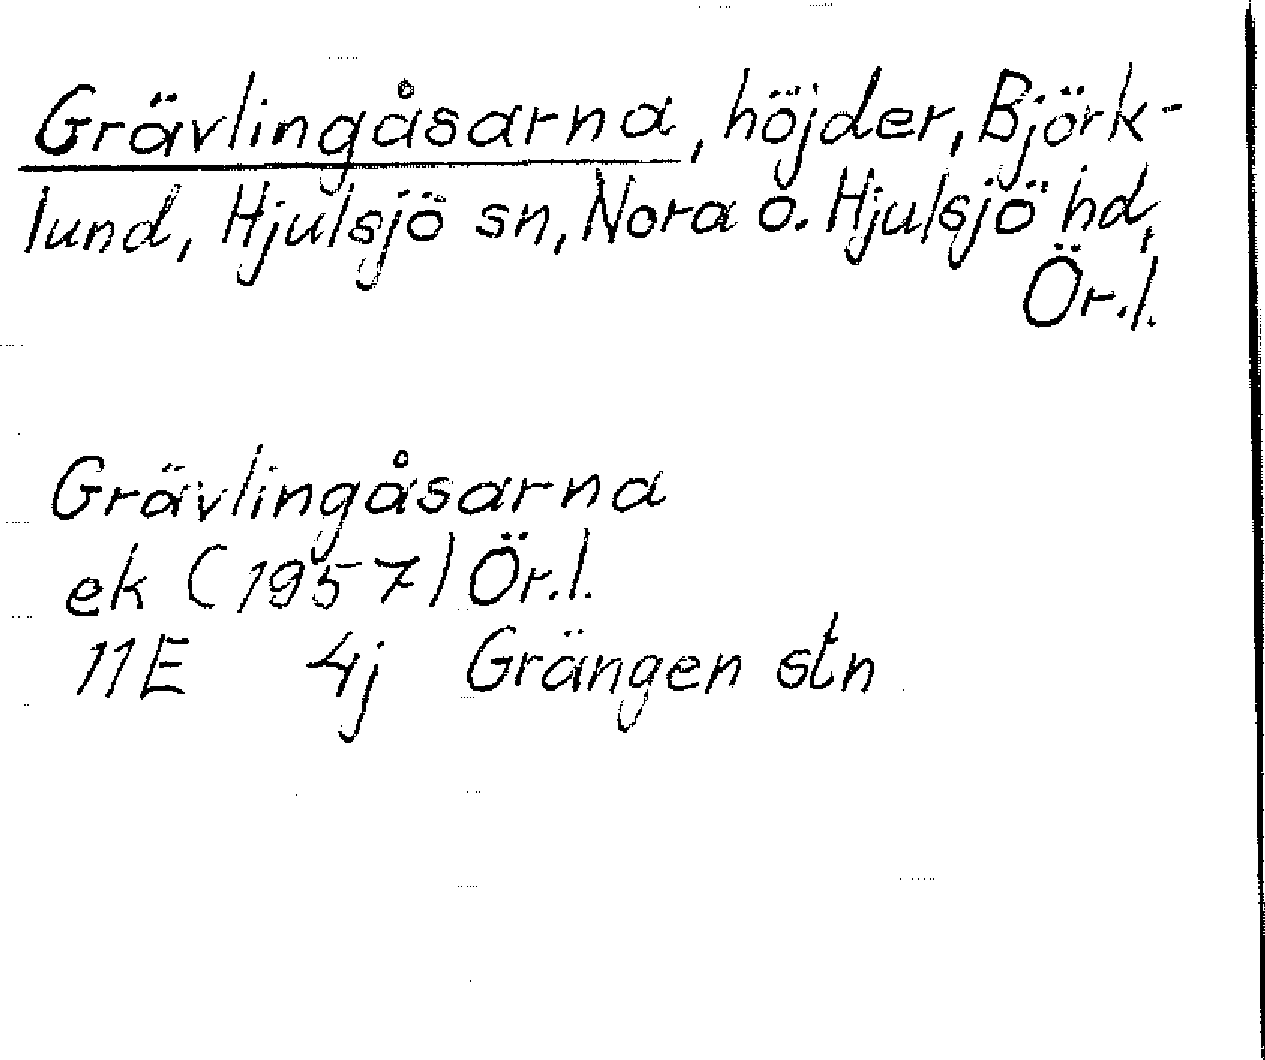 Grävlingåsarna, höjder, Björk-
lund, Hjulsjö sn, Nora o. Hjulsjö hd,
Ör.l.
Grävlingåsarna
ek (1957) Ör.l.
11E 4j Grängen stn